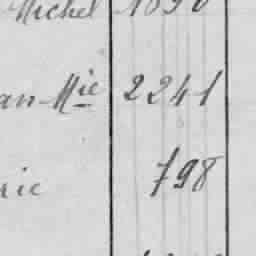 Michel 1890
an-Mie 2241
rie 798